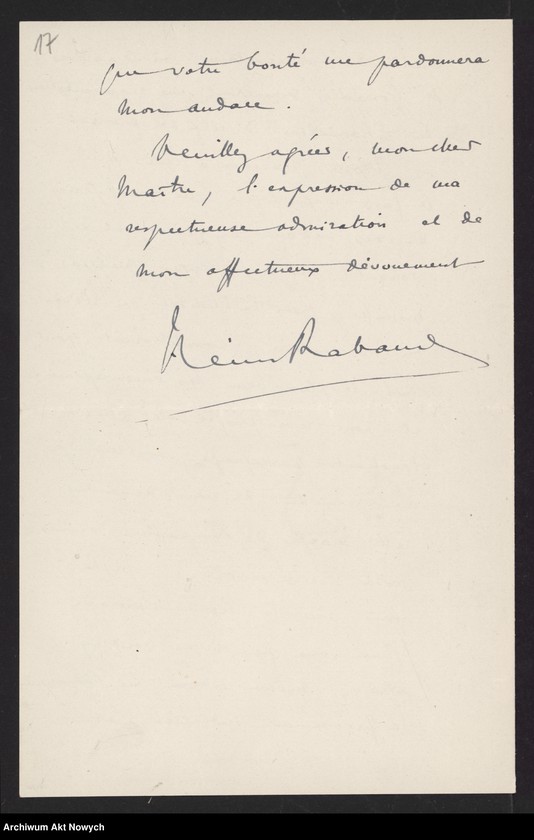 17
que votre bonté me pardonnera
mon audace.
Veuillez agréer, mon cher
Maître, l'expression de ma
respectueuse admiration et de
mon affectueux dévouement
Henri Rabaud
Archiwum Akt Nowych